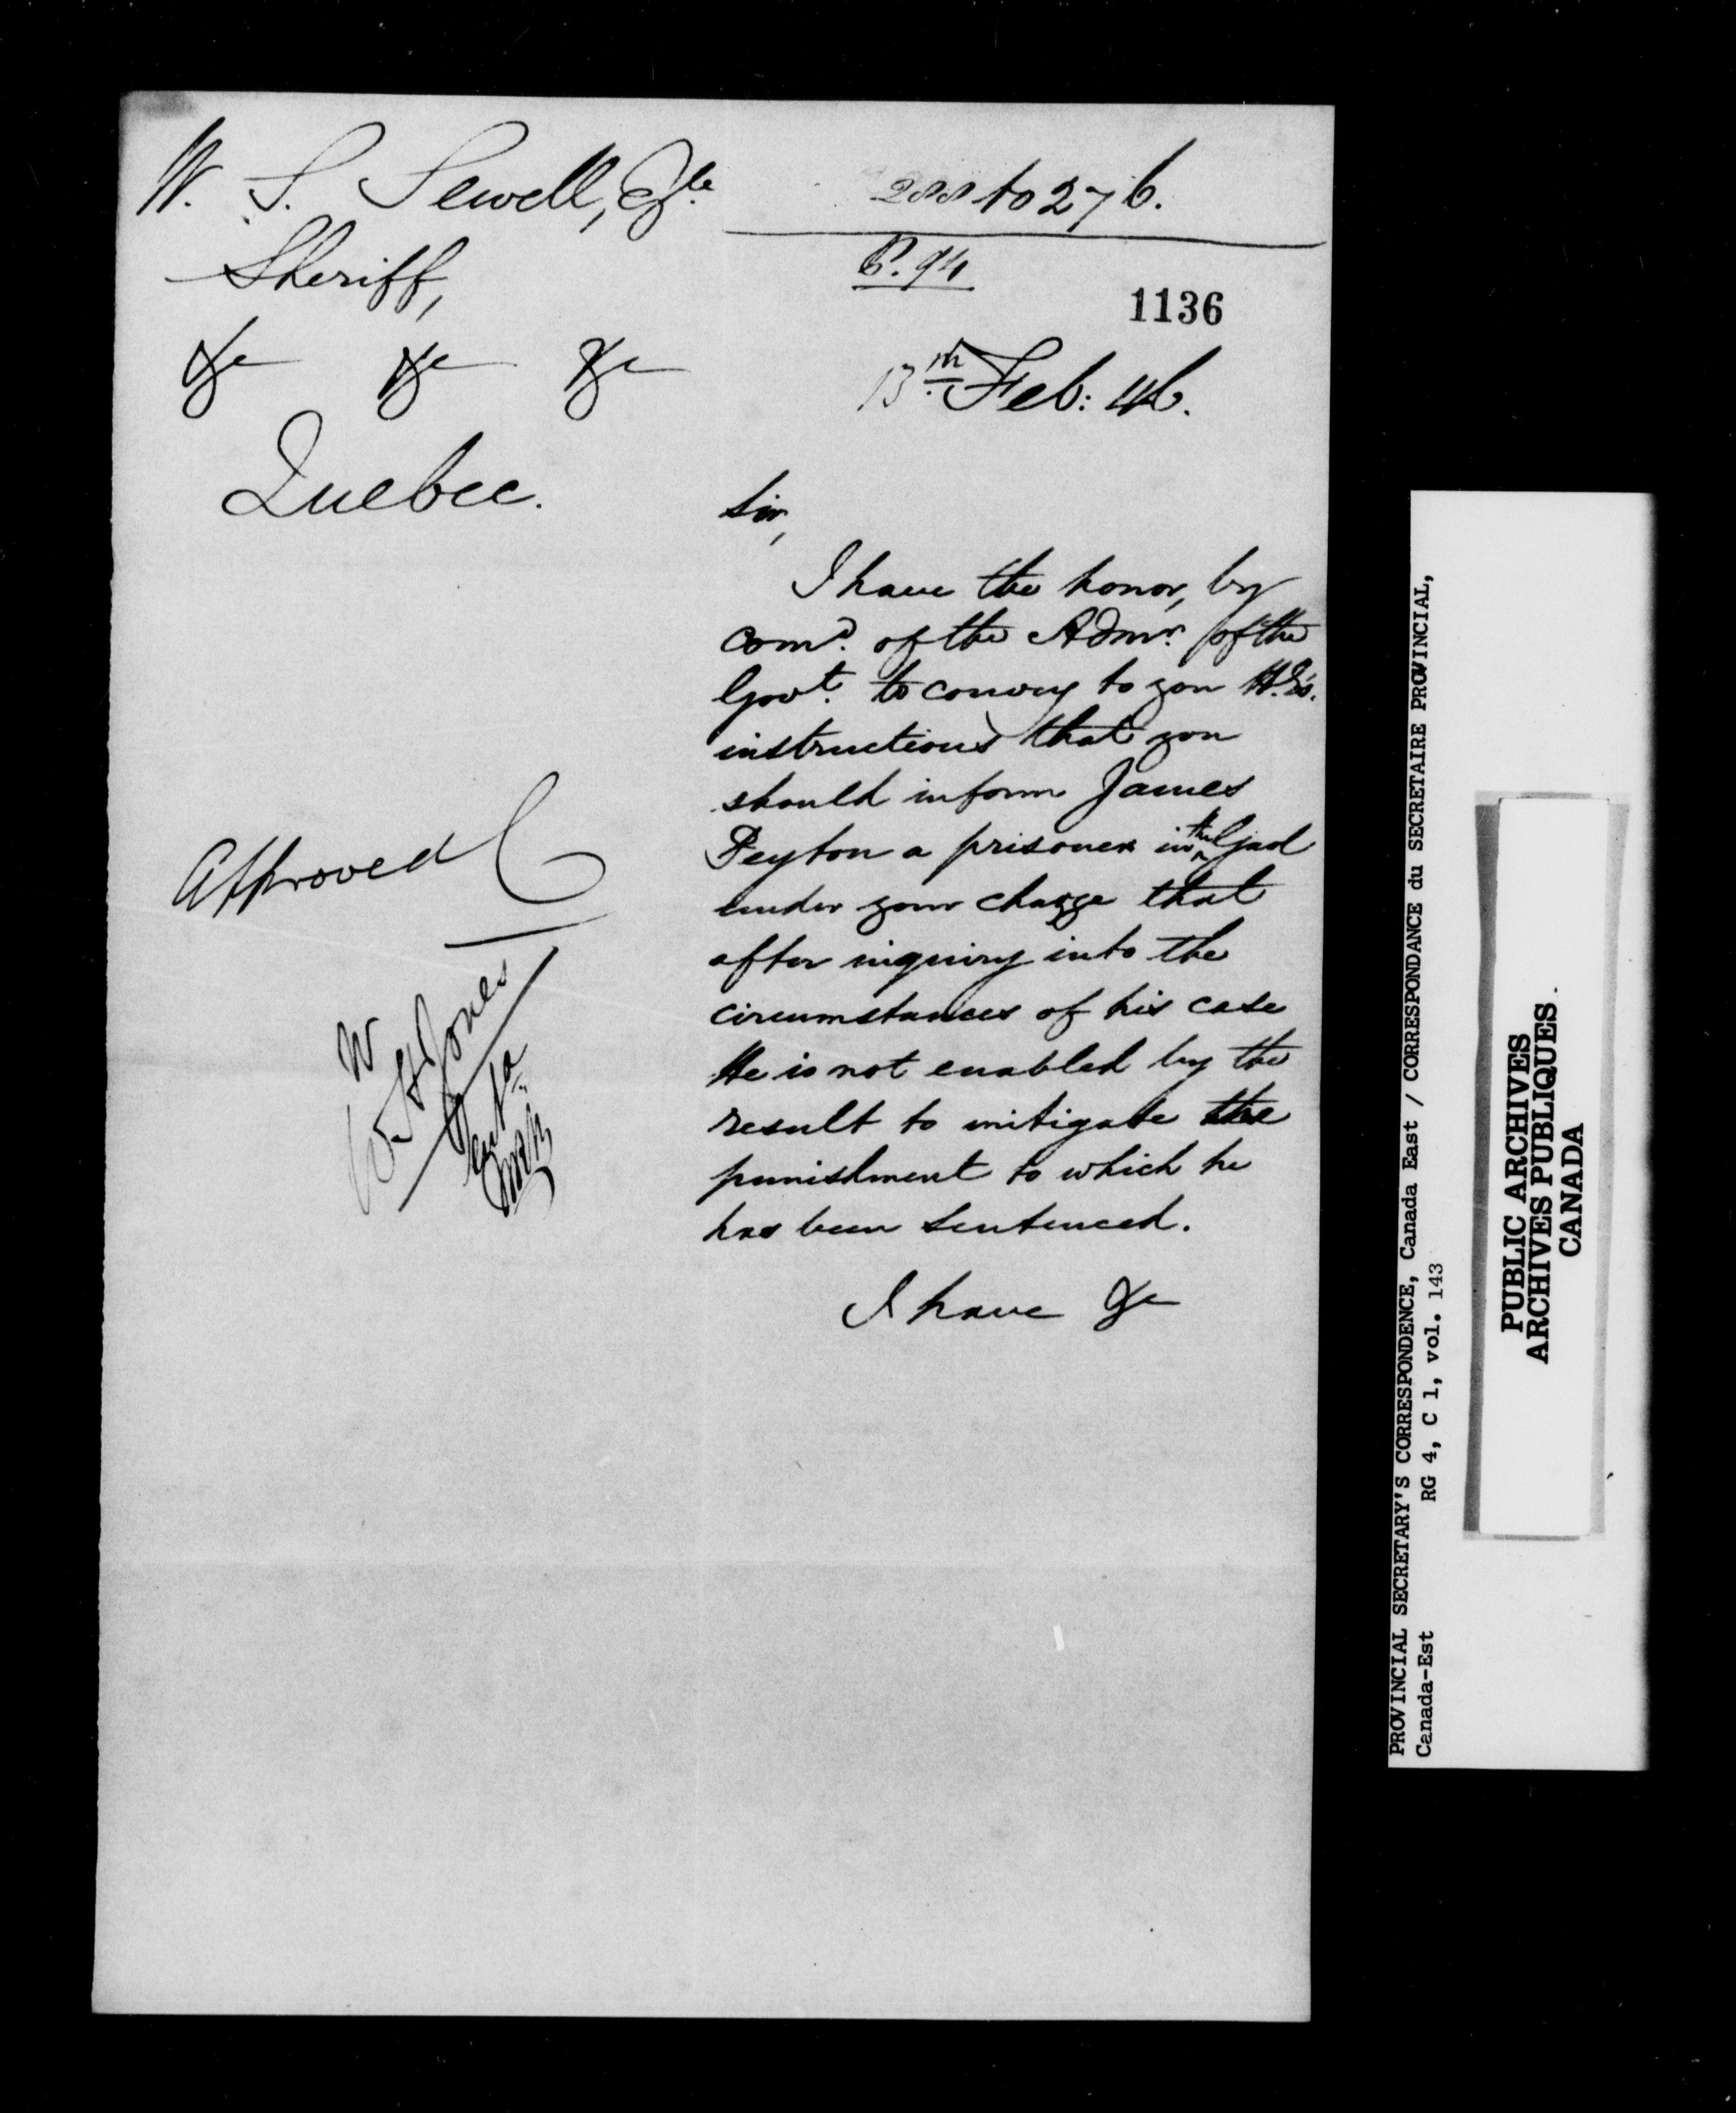 W. S. Sewell, Esqre
Sheriff,
&c &c &c
Quebec.
288 to 276.
P. 94
1136
13th Feb: 46.
Sir,
I have the honor, by
comd. of the Admr. of the
Govt. to convey to you H.E's.
instructions that you
should inform James
Peyton a prisoner in the Gaol
under your charge that
after inquiry into the
circumstances of his case
He is not enabled by the
result to mitigate the
punishment to which he
has been sentenced.
I have &c
Approved C
W
Jones
PROVINCIAL SECRETARY'S CORRESPONDENCE, Canada East / CORRESPONDANCE du SECRETAIRE PROVINCIAL,
Canada-Est RG 4, C 1, vol. 143
PUBLIC ARCHIVES
ARCHIVES PUBLIQUES
CANADA